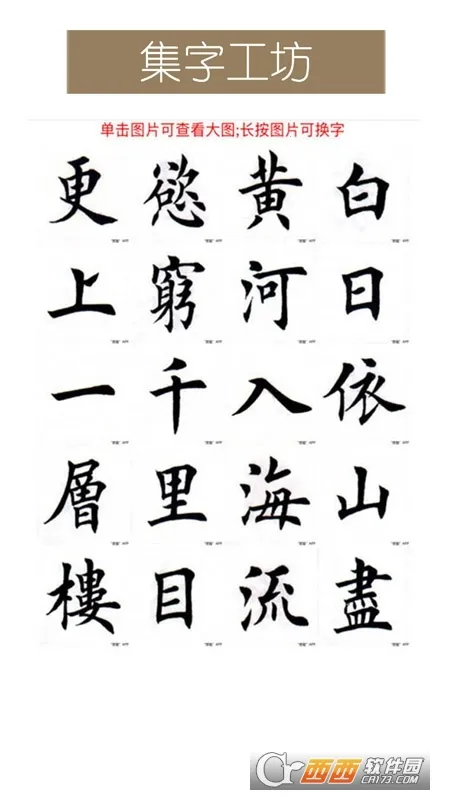 集字工坊
单击图片可查看大图;长按图片可换字
白日依山盡
黄河入海流
慾窮千里目
更上一層樓
西西软件园
CR173.COM